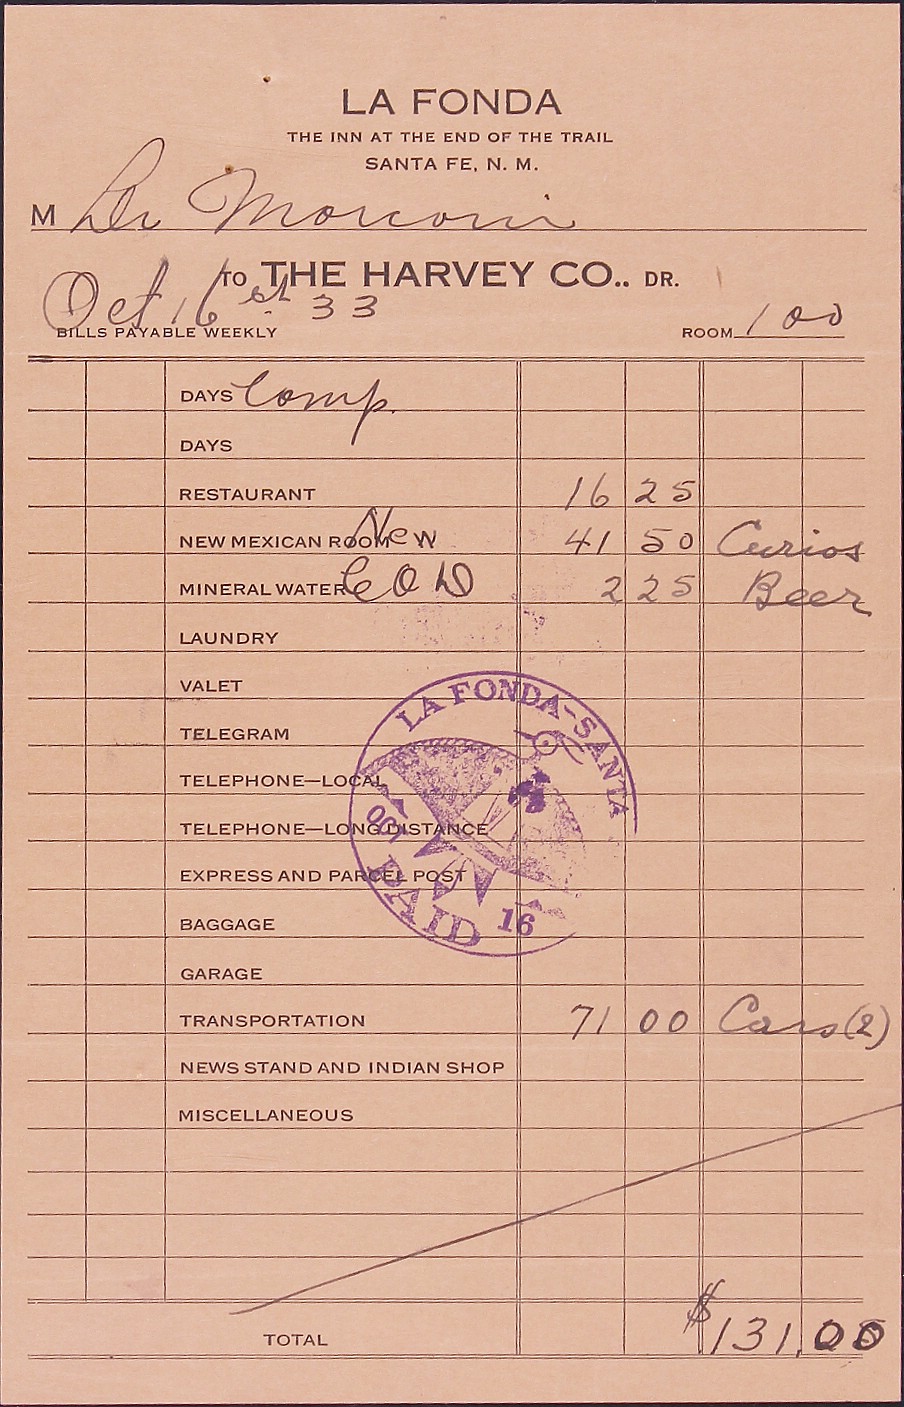 LA FONDA
THE INN AT THE END OF THE TRAIL
SANTA FE, N. M.
M Dr Marconi
TO THE HARVEY CO.. DR.
Oct 16st 33
BILLS PAYABLE WEEKLY ROOM 100
DAYS Comp.
DAYS
RESTAURANT 16 25
NEW MEXICAN ROOM New 41 50 Curios
MINERAL WATER COD 2 25 Beer
LAUNDRY
VALET
TELEGRAM
TELEPHONE—LOCAL
TELEPHONE—LONG DISTANCE
EXPRESS AND PARCEL POST
BAGGAGE
GARAGE
TRANSPORTATION 71 00 Cars (2)
NEWS STAND AND INDIAN SHOP
MISCELLANEOUS
TOTAL $131.00
LA FONDA-SANTA
PAID 16